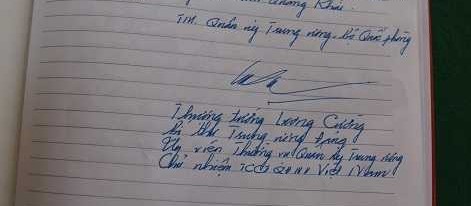 Khải.
TM. Quân ủy Trung ương - Bộ Quốc phòng
Thượng tướng Lương Cường
Bí thư Trung ương Đảng
Ủy viên Thường vụ Quân ủy Trung ương
Chủ nhiệm TCCT QĐND Việt Nam